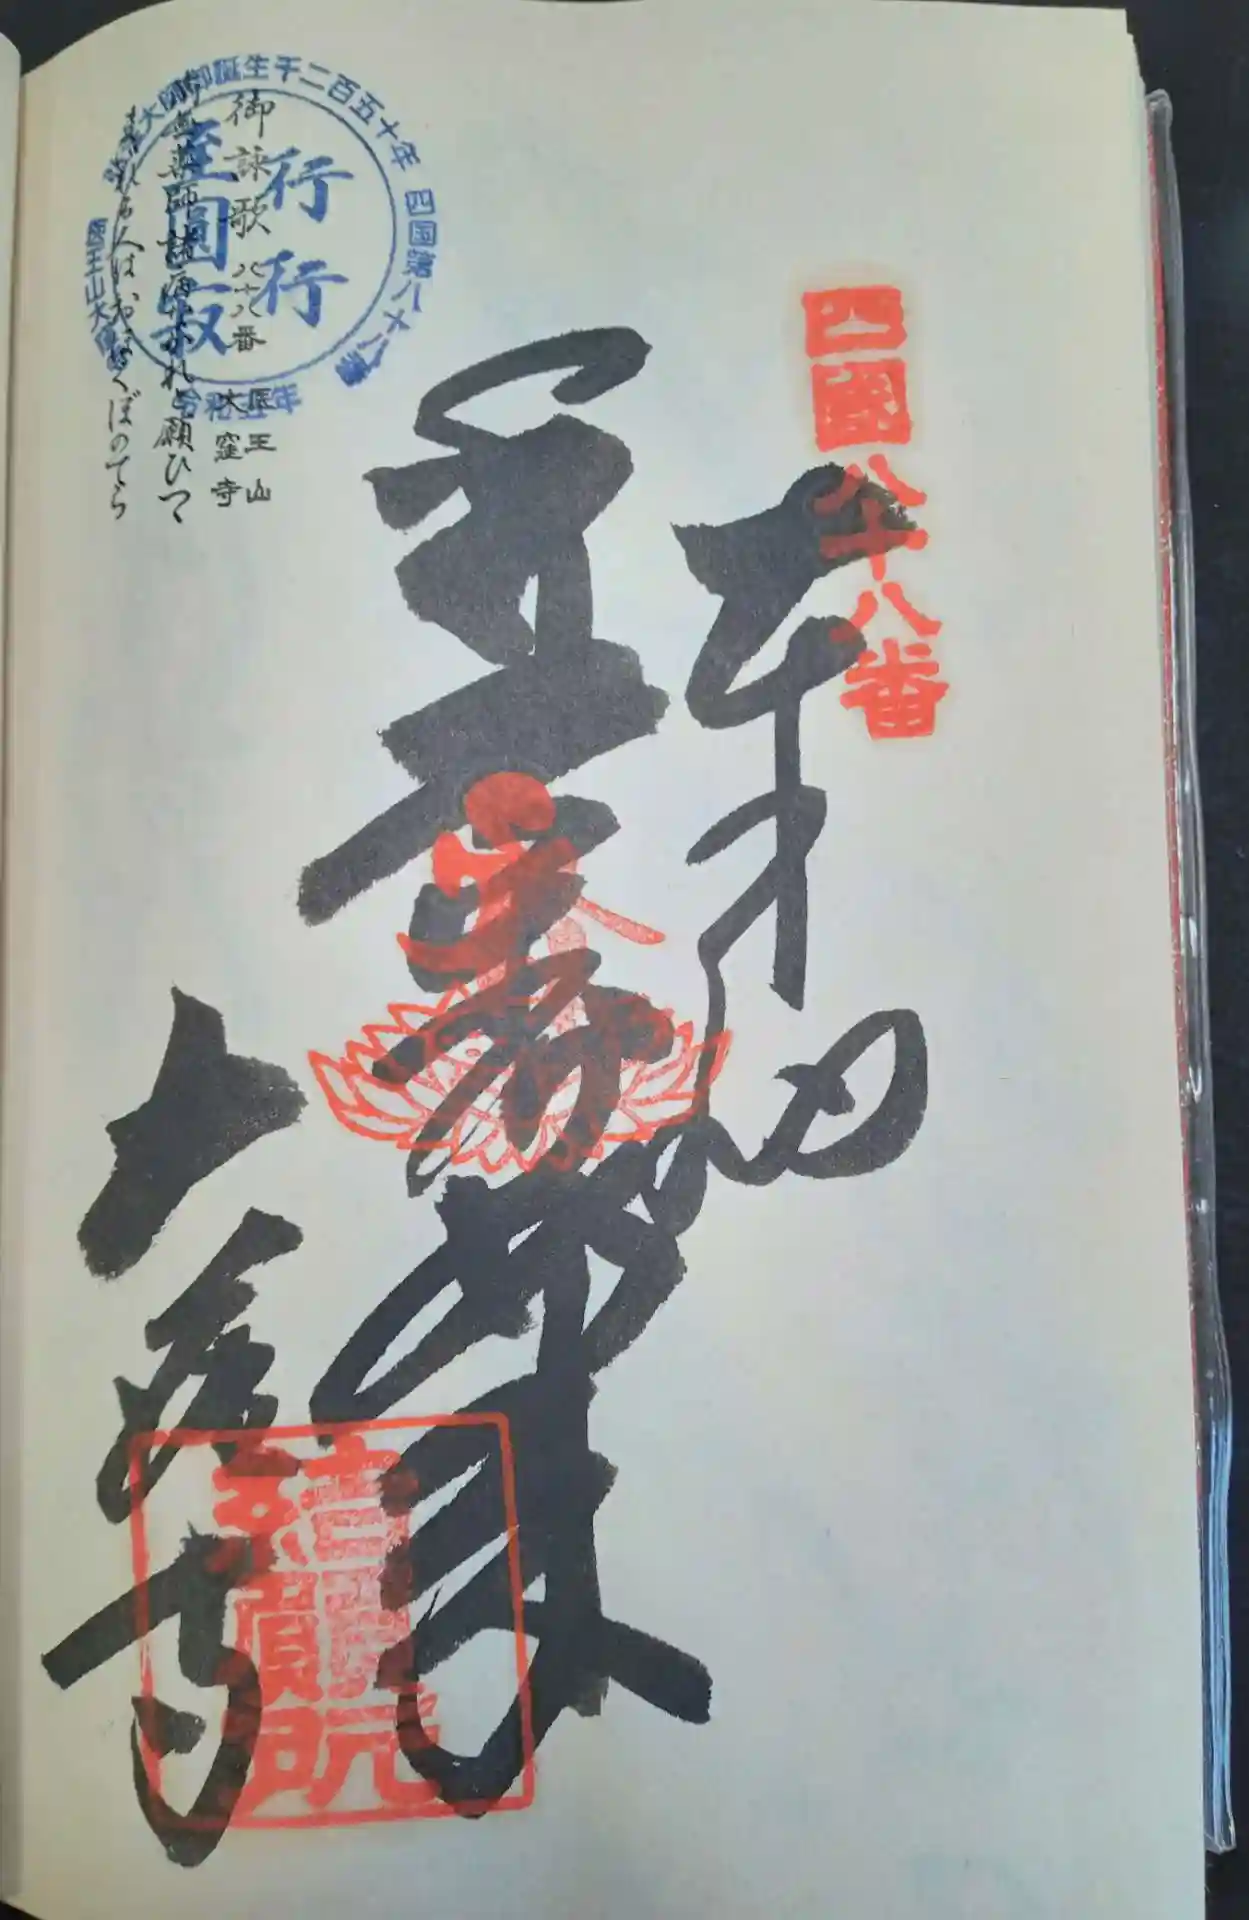 四國八十八番
奉納
大窪寺
遍照院
御詠歌 八十八番 医王山 大窪寺
南無薬師諸病なかれと願ひつゝ
まいれる人はおほくぼのてら
弘法大師御誕生千二百五十年 四国第八十八番
医王山大窪寺
令和五年
行行
至圓寂